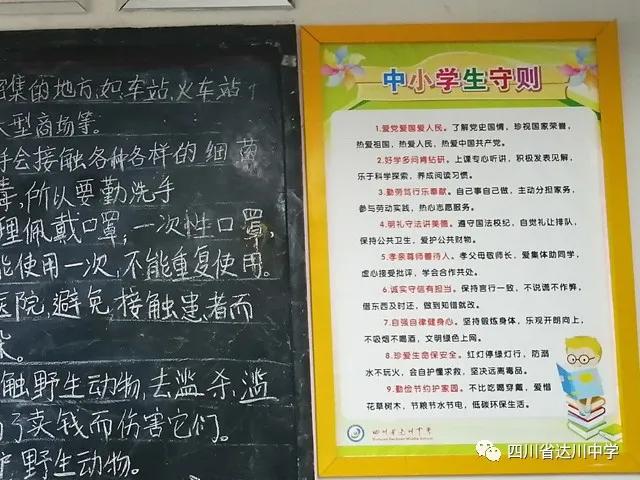 密集的地方,如,车站,火车站
大型商场等。
会接触各种各样的细菌
毒,所以要勤洗手
理佩戴口罩,一次性口罩,
能使用一次,不能重复使用。
医院,避免接触患者而
染。
触野生动物,去滥杀,滥
了卖钱而伤害它们。
野生动物。
中小学生守则
1.爱党爱国爱人民。了解党史国情,珍视国家荣誉,
热爱祖国,热爱人民,热爱中国共产党。
2.好学多问肯钻研。上课专心听讲,积极发表见解,
乐于科学探索,养成阅读习惯。
3.勤劳笃行乐奉献。自己事自己做,主动分担家务,
参与劳动实践,热心志愿服务。
4.明礼守法讲美德。遵守国法校纪,自觉礼让排队,
保持公共卫生,爱护公共财物。
5.孝亲尊师善待人。孝父母敬师长,爱集体助同学,
虚心接受批评,学会合作共处。
6.诚实守信有担当。保持言行一致,不说谎不作弊,
借东西及时还,做到知错就改。
7.自强自律健身心。坚持锻炼身体,乐观开朗向上,
不吸烟不喝酒,文明绿色上网。
8.珍爱生命保安全。红灯停绿灯行,防溺
水不玩火,会自护懂求救,坚决远离毒品。
9.勤俭节约护家园。不比吃喝穿戴,爱惜
花草树木,节粮节水节电,低碳环保生活。
四川省达川中学
四川省达川中学